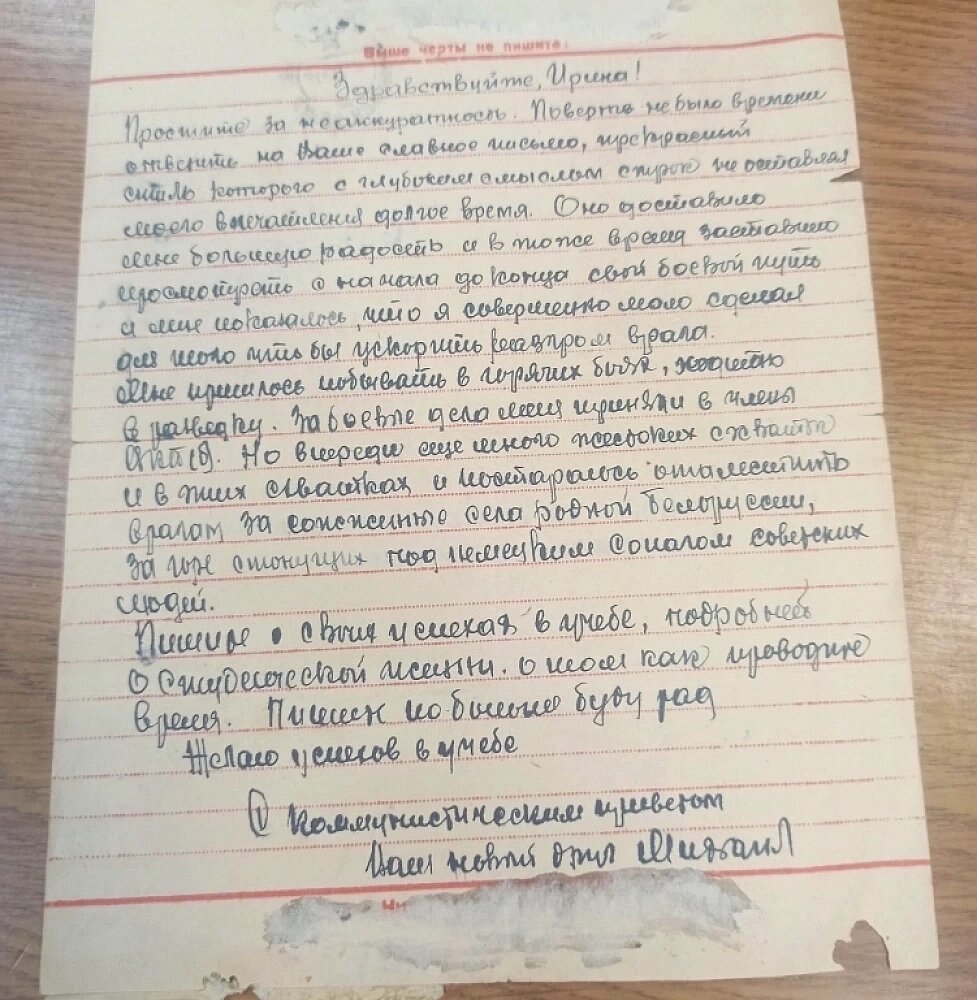 Выше черты не пишите!
Здравствуйте, Ирина!
Простите за неаккуратность. Поверьте не было времени
ответить на Ваше славное письмо, прекрасный
стиль которого с глубоким смыслом строк не оставлял
моего впечатления долгое время. Оно доставило
мне большую радость и в тоже время заставило
просмотреть с начала до конца свой боевой путь
и мне показалось, что я совершенно мало сделал
для того что бы ускорить разгром врага.
Мне пришлось побывать в горячих боях, ходить
в разведку. За боевые дела меня приняли в члены
ВКП(б). Но впереди еще много жестоких схваток
и в этих схватках я постараюсь отомстить
врагам за сожженные села родной Белоруссии,
за горе стонущих под немецким сапогом советских
людей.
Пишите о своих успехах в учебе, подробнее
о студенческой жизни. о том как проводите
время. Пишите по больше буду рад
Желаю успехов в учебе
С Коммунистическим приветом
Ваш новый друг Михаил
Ни